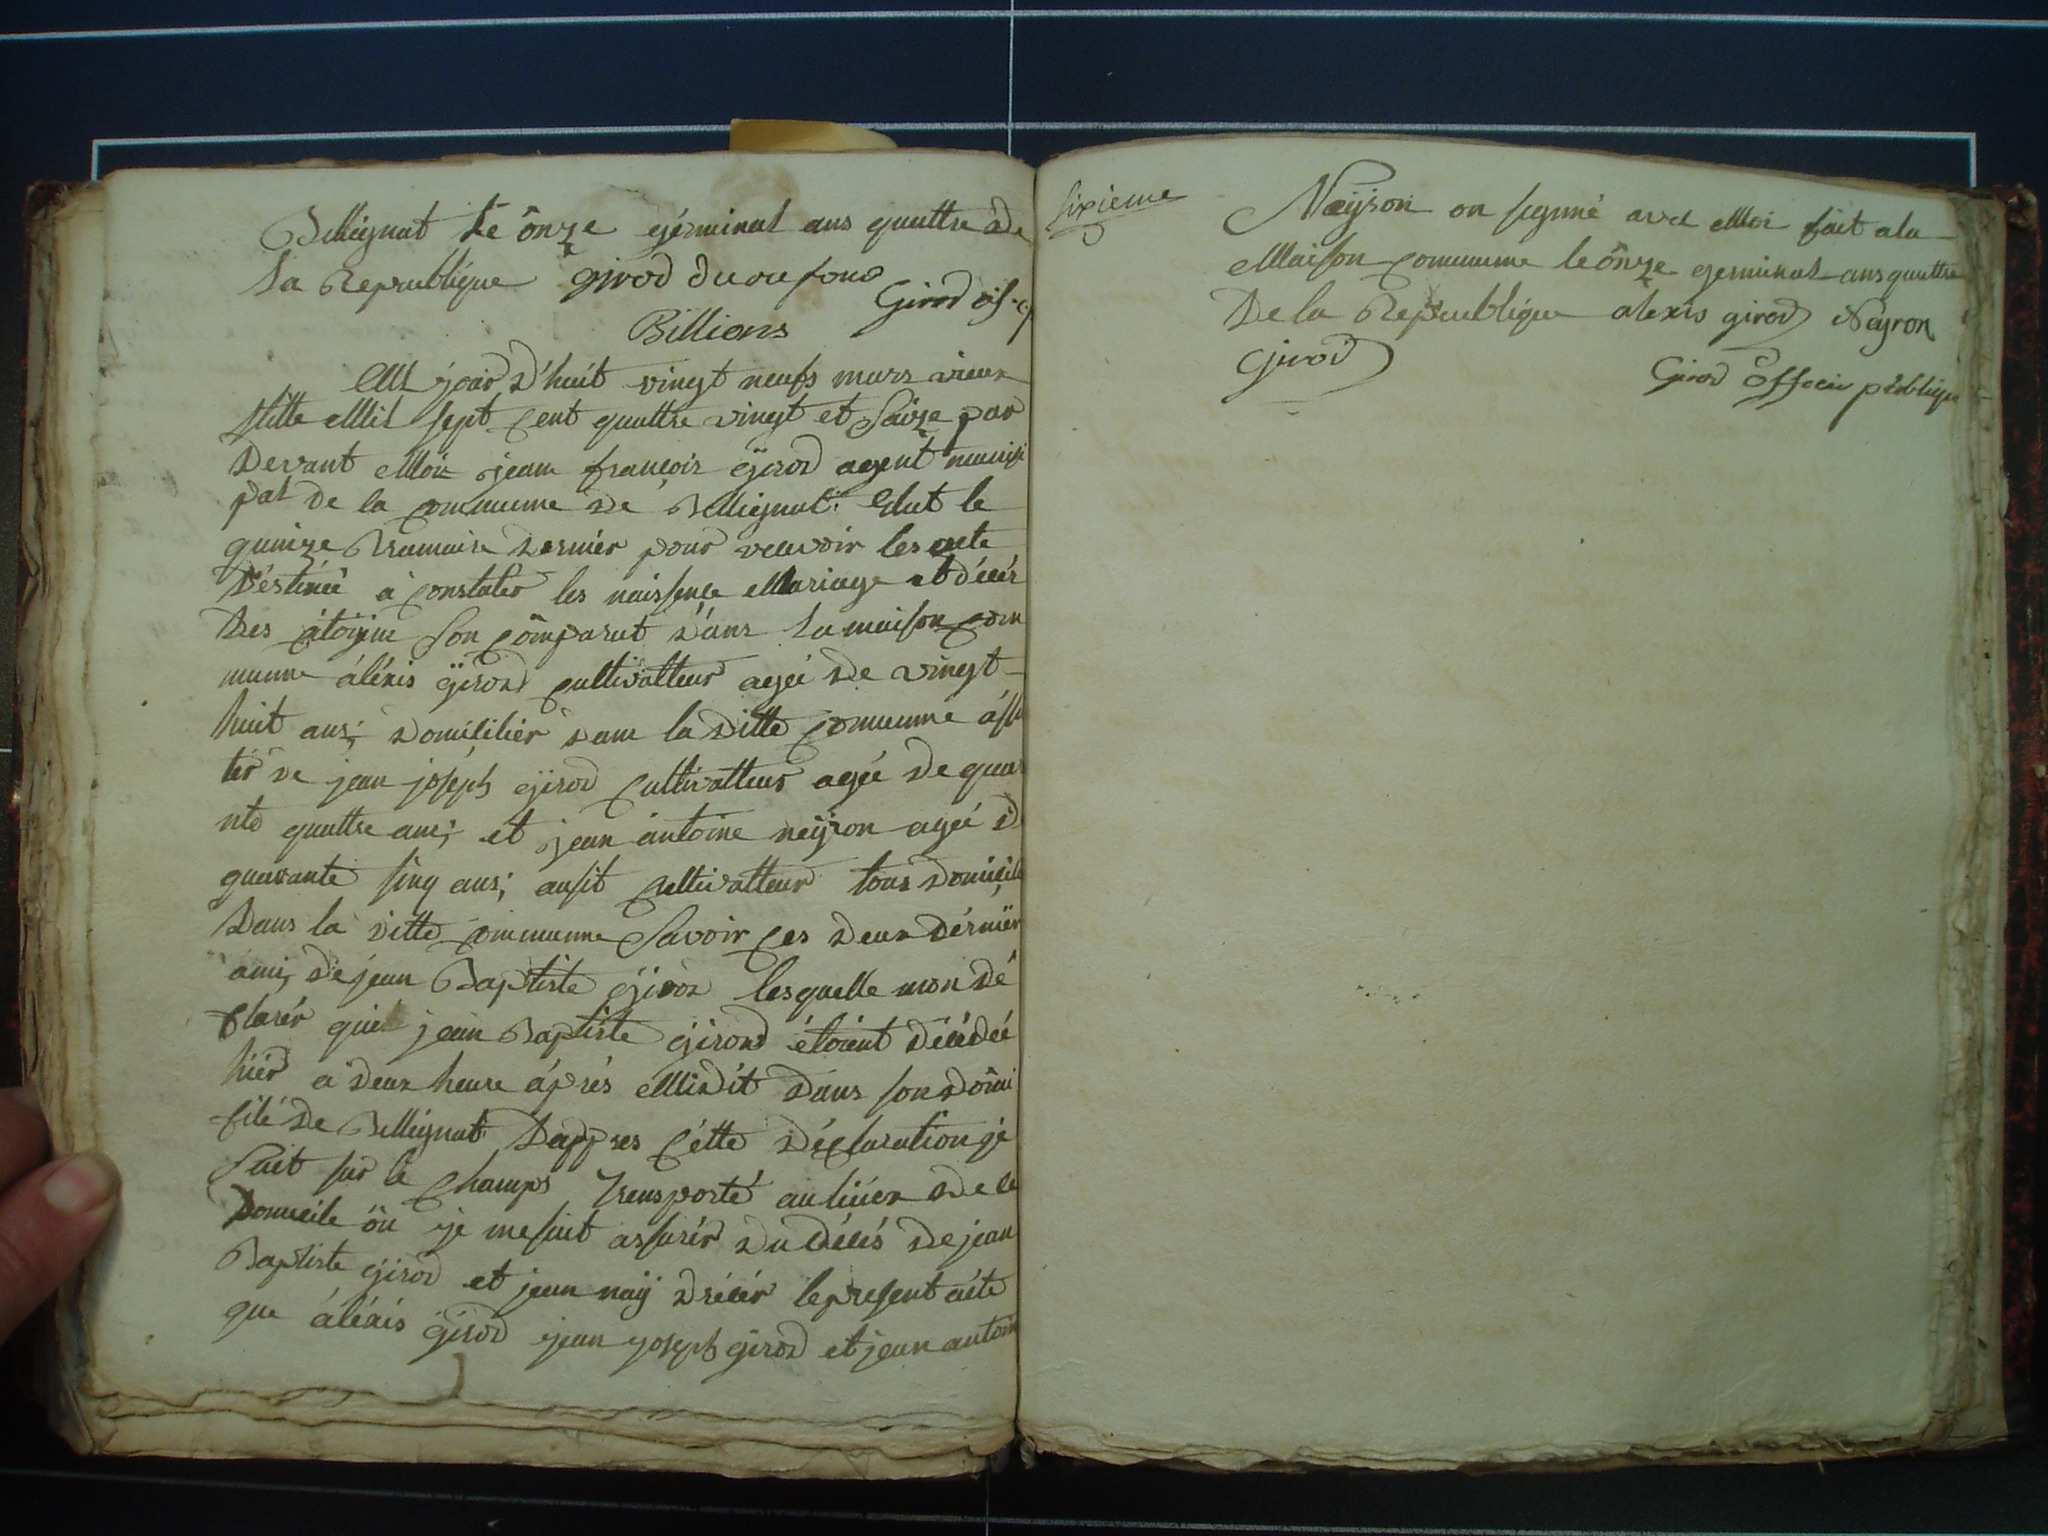 Belliegnat Le ônze gérminal ans quattre de
La Republique girod ducrefond
Girod
Billions
AUjourd'huit vingt neufs mars vieux
stille Mil sept cent quattre vingt et Saize par
Devant Moi jean françois girod agent munisi
pal de la commune de Belliegnat Elut le
quinze Brumaire dernier pour recevoir les acte
Déstinée a constater les naissence Mariage et décér
Des citoijin Son cômparut d'ans La maison com
munne áléxis girod cultivatteur ageé de vingt
huit ans; domicilier dans la ditte Communne assis
ter de jean joséph girod Cultivatteur ageé de quar
nte quattre ans; et jean antoine neÿron ageé d
quarante sinq ans; ausit cultivatteur tous domicile
Dans la ditte communne Savoir Ces deux dérnier
ami; de jean Baptiste girod lesquelle mon dé
clarér que jean Baptiste girod étoient décédeé
hier a deux heure áprés Midit dans son domi
sile de Belliegnat Dappres Cétte déclaration je
suit sur le Champs Transporté au lieux de ce
Domicile ôu je me suit assurér du décés de jean
Baptiste girod et jean naÿ dréser le present acte
que áléxis girod jean joseph girod et jean antoin
sixieme
Neÿron on signé avec Moi fait a la
Maison commune le ônze germinal ans quattre
De la Republique alexis girod Neyron
girod
Girod officier publique